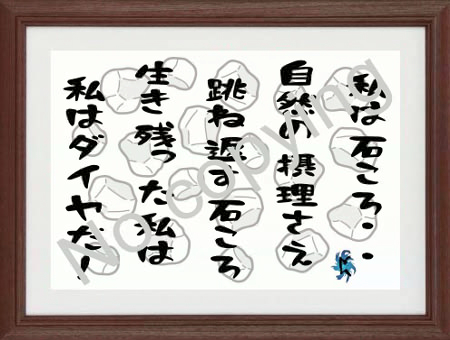 私は石ころ・・
自然の摂理さえ
跳ね返す石ころ
生き残った私は
私はダイヤだ！
No copying